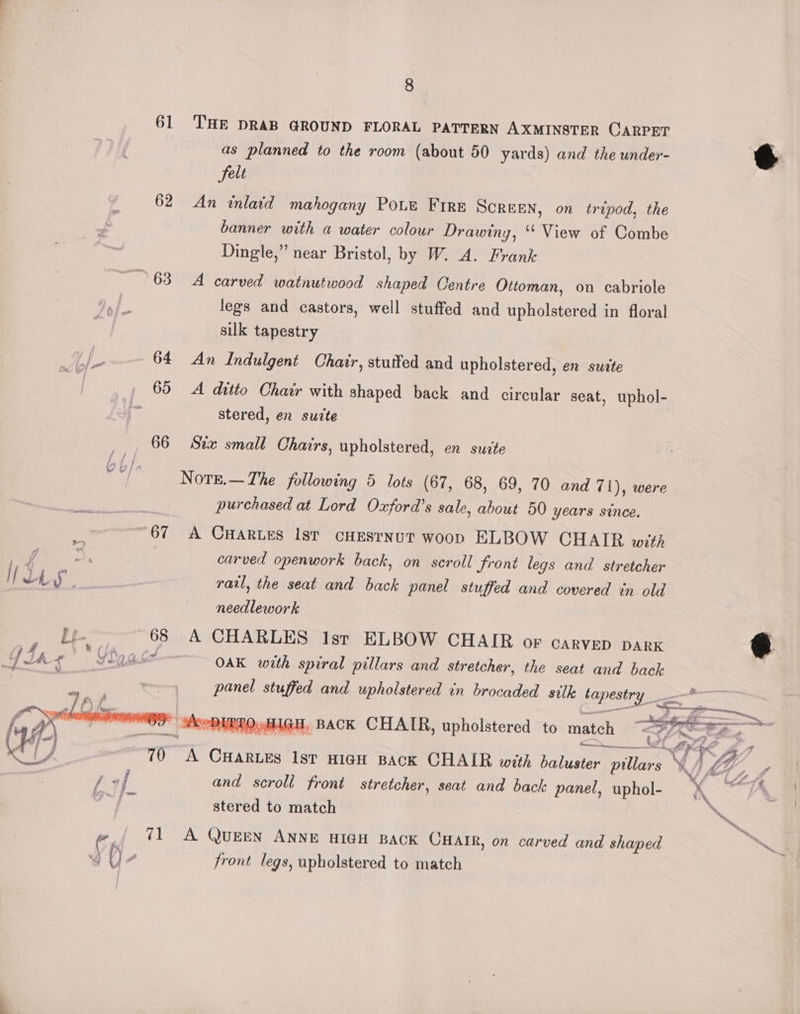 8
61 THE DRAB GROUND FLORAL PATTERN AXMINSTER CARPET
as planned to the room (about 50 yards) and the under-
felt
62 An inlaid mahogany POLE FIRE SCREEN, on tripod, the
banner with a water colour Drawing, “View of Combe
Dingle,” near Bristol, by W. A. Frank
63 A carved watnutwood shaped Centre Ottoman, on cabriole
legs and castors, well stuffed and upholstered in floral
silk tapestry
64 An Indulgent Chair, stuffed and upholstered, en suite
65 A ditto Chair with shaped back and circular seat, uphol-
stered, en suite
66 Six small Chairs, upholstered, en suite
NOTE.—The following 5 lots (67, 68, 69, 70 and 71), were
purchased at Lord Oxford's sale, about 50 years since.
67 A CHARLES 1ST CHESTNUT WOOD ELBOW CHAIR with
carved openwork back, on scroll front legs and stretcher
rail, the seat and back panel stuffed and covered in old
needlework
68 A CHARLES 1ST ELBOW CHAIR OF CARVED DARK
OAK with spiral pillars and stretcher, the seat and back
panel stuffed and upholstered in brocaded silk tapestry
69 A DITTO, HIGH, BACK CHAIR, upholstered to match
70 A CHARLES 1ST HIGH BACK CHAIR with baluster pillars
and scroll front stretcher, seat and back panel, uphol-
stered to match
71 A QUEEN ANNE HIGH BACK CHAIR, on carved and shaped
front legs, upholstered to match